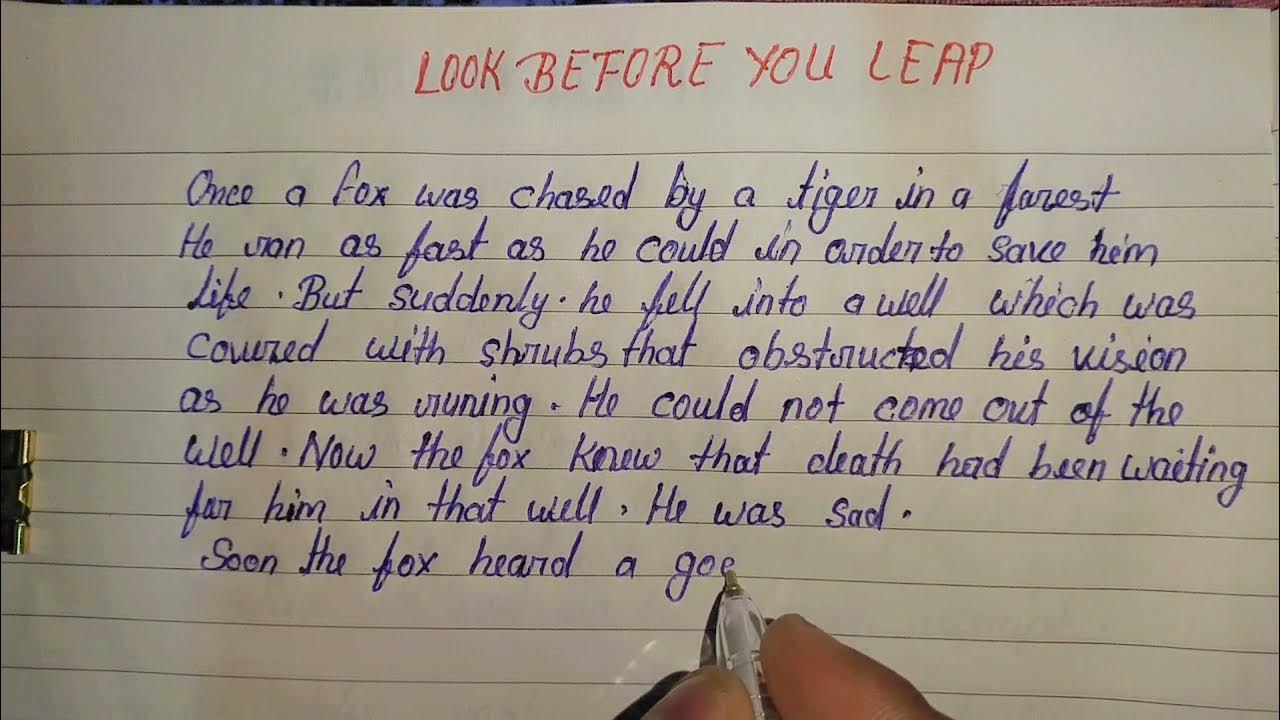 LOOK BEFORE YOU LEAP
Once a fox was chased by a tiger in a farest
He ran as fast as he could in arder to save him
life. But suddenly. he fell into a well which was
Covered with shrubs that obstructed his vision
as he was runing. He could not come out of the
well. Now the fox knew that death had been waiting
far him in that well. He was sad.
Soon the fox heard a goa